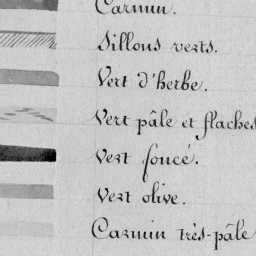 Carmin.
Sillons verts.
Vert d'herbe.
Vert pâle et flaches
Vert foncé.
Vert olive.
Carmin très-pâle